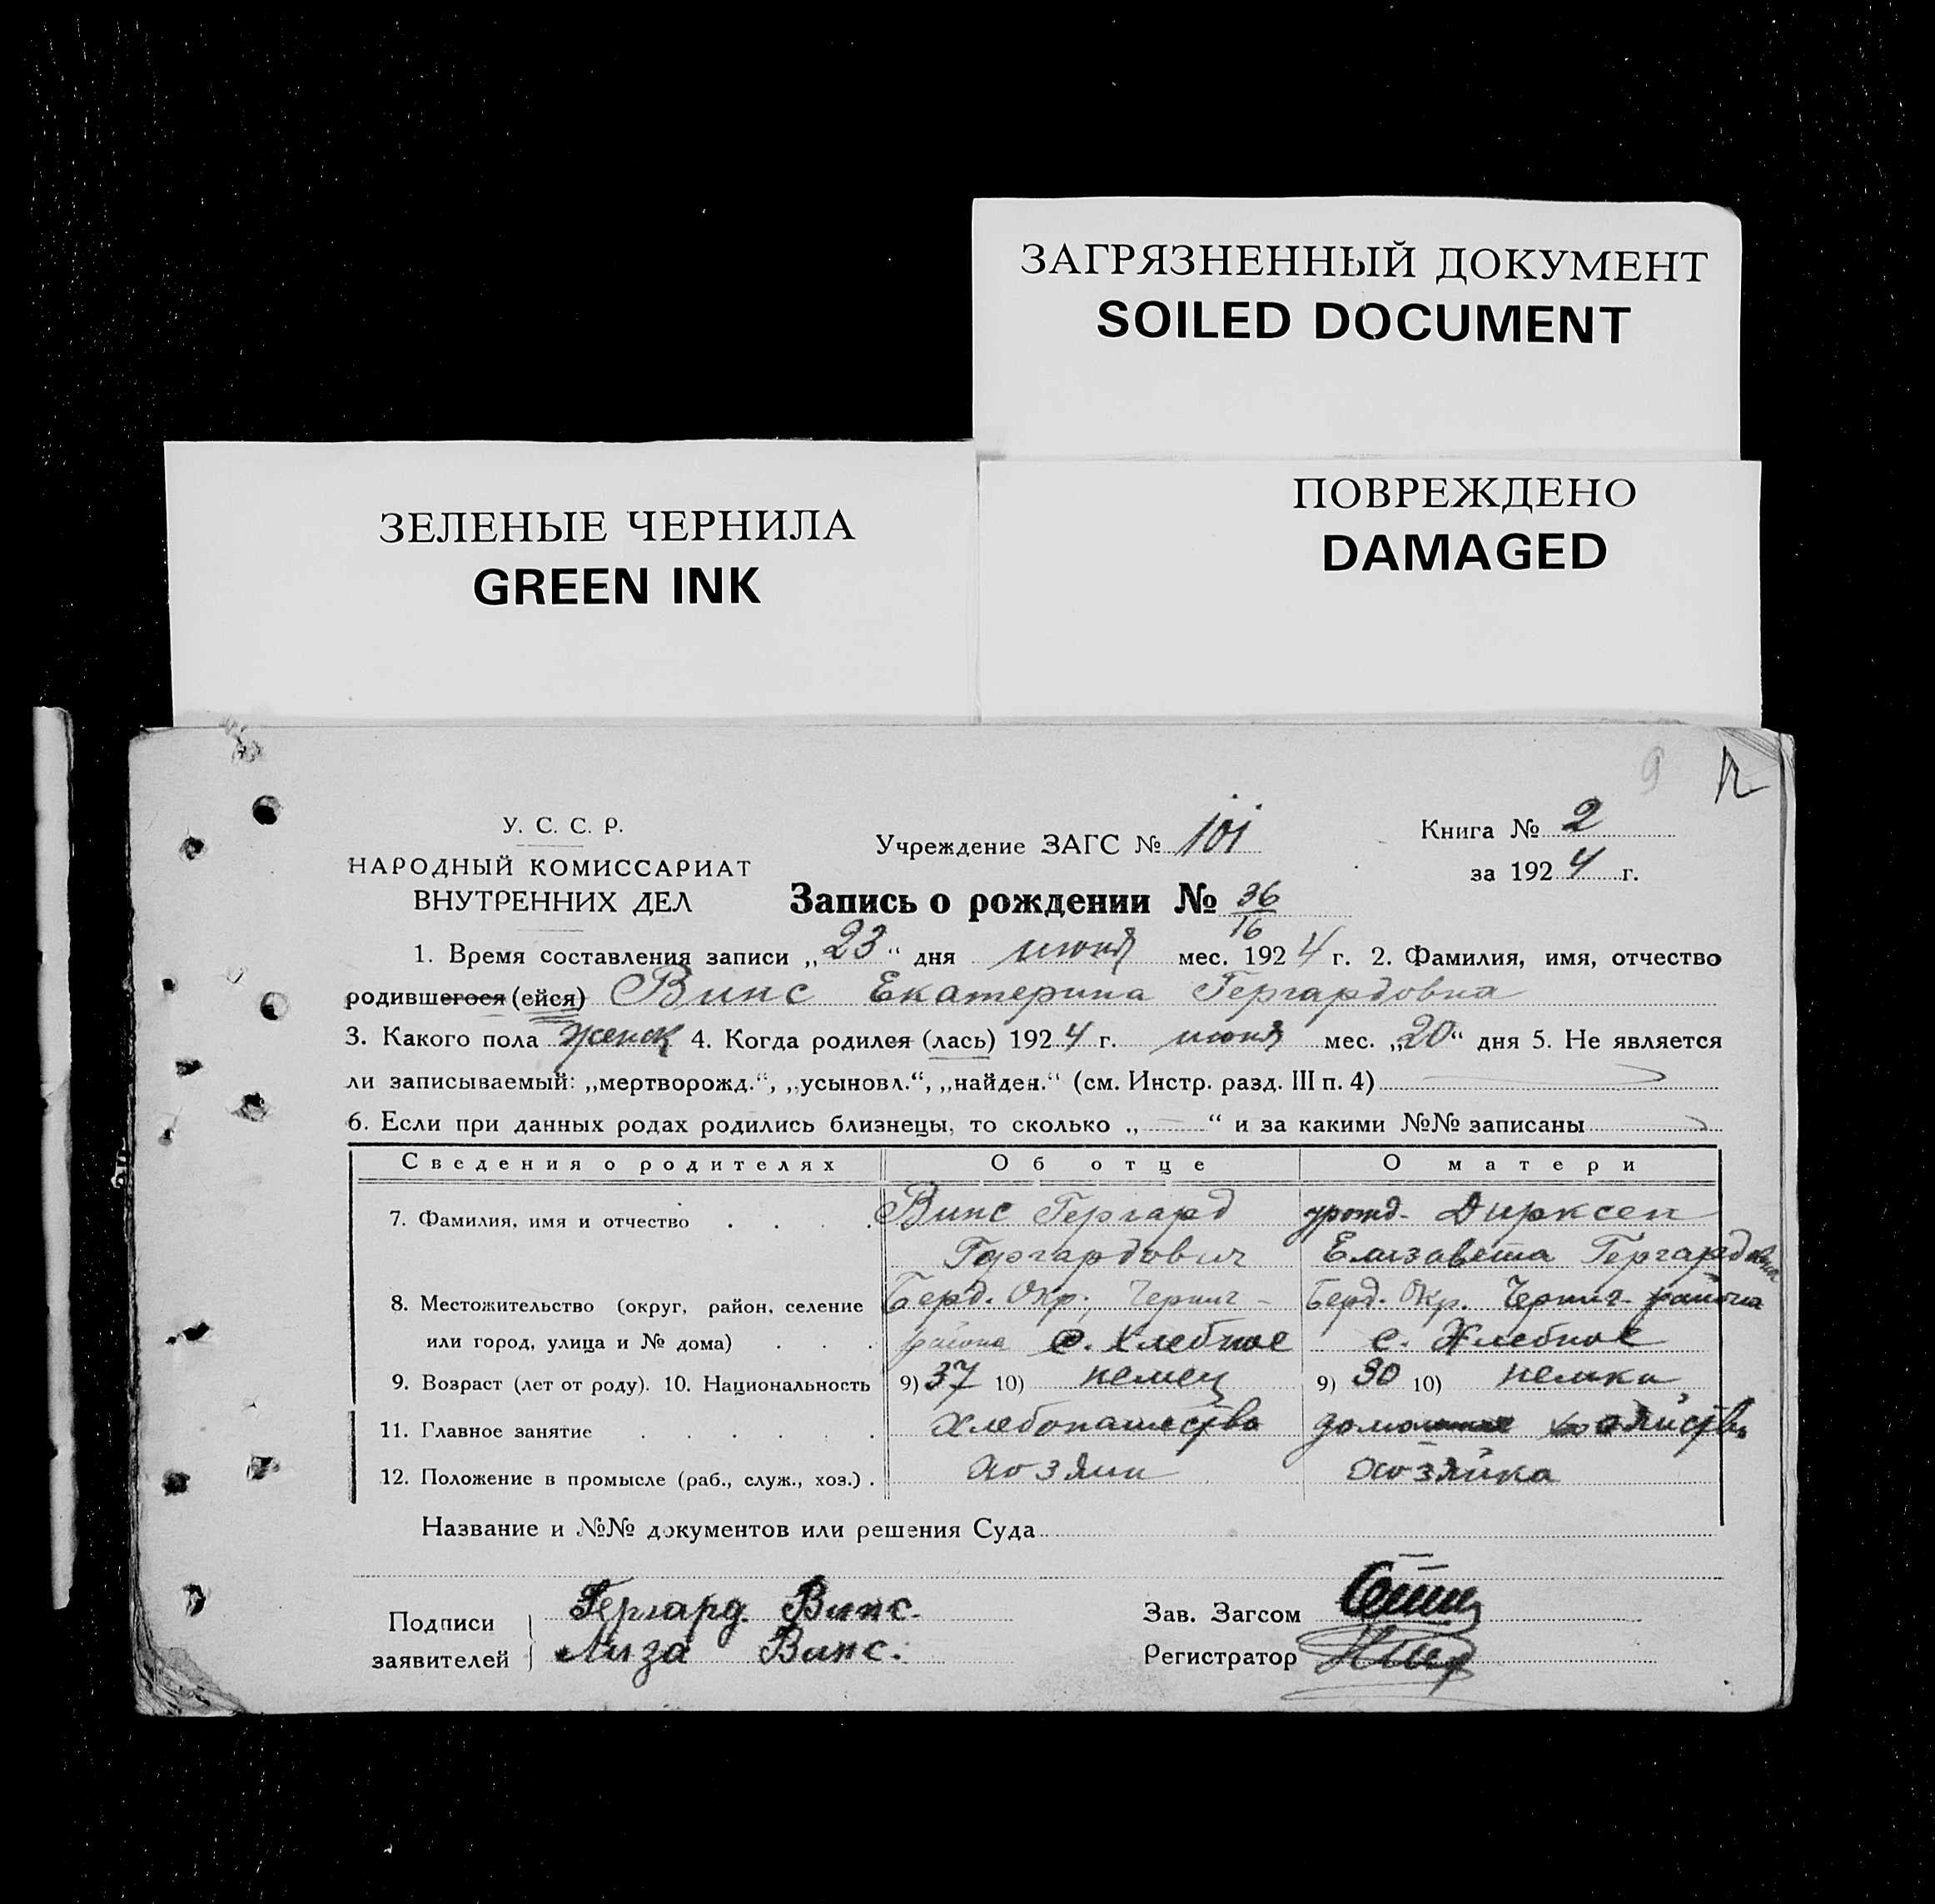 ЗАГРЯЗНЕННЫЙ ДОКУМЕНТ
SOILED DOCUMENT
ЗЕЛЕНЫЕ ЧЕРНИЛА
GREEN INK
ПОВРЕЖДЕНО
DAMAGED
9
У. С. С. Р.
НАРОДНЫЙ КОМИССАРИАТ
ВНУТРЕННИХ ДЕЛ
Учреждение ЗАГС № 101
Книга № 2
за 1924 г.
Запись о рождении № 36/16
1. Время составления записи „23“ дня июня мес. 1924 г. 2. Фамилия, имя, отчество
родившегося (ейся) Винс Екатерина Гергардовна
3. Какого пола женск 4. Когда родился (лась) 1924 г. июня мес. „20“ дня 5. Не является
ли записываемый: „мертворожд.“, „усыновл.“, „найден.“ (см. Инстр. разд. III п. 4)
6. Если при данных родах родились близнецы, то сколько „ — “ и за какими №№ записаны
Сведения о родителях Об отце О матери
7. Фамилия, имя и отчество . . . . Винс Гергард урожд. Дирксен
Гергардович Елизавета Гергардовна
8. Местожительство (округ, район, селение Берд. Окр. Черниг- Берд. Окр. Черниг- района
или город, улица и № дома) . . . района с. Хлебное с. Хлебное
9. Возраст (лет от роду). 10. Национальность 9) 37 10) немец 9) 30 10) немка
11. Главное занятие . . . . . . хлебопашество хозяйство
12. Положение в промысле (раб., служ., хоз.) . хозяин хозяйка
Название и №№ документов или решения Суда
Подписи Гергард Винс. Зав. Загсом
заявителей Лиза Винс. Регистратор